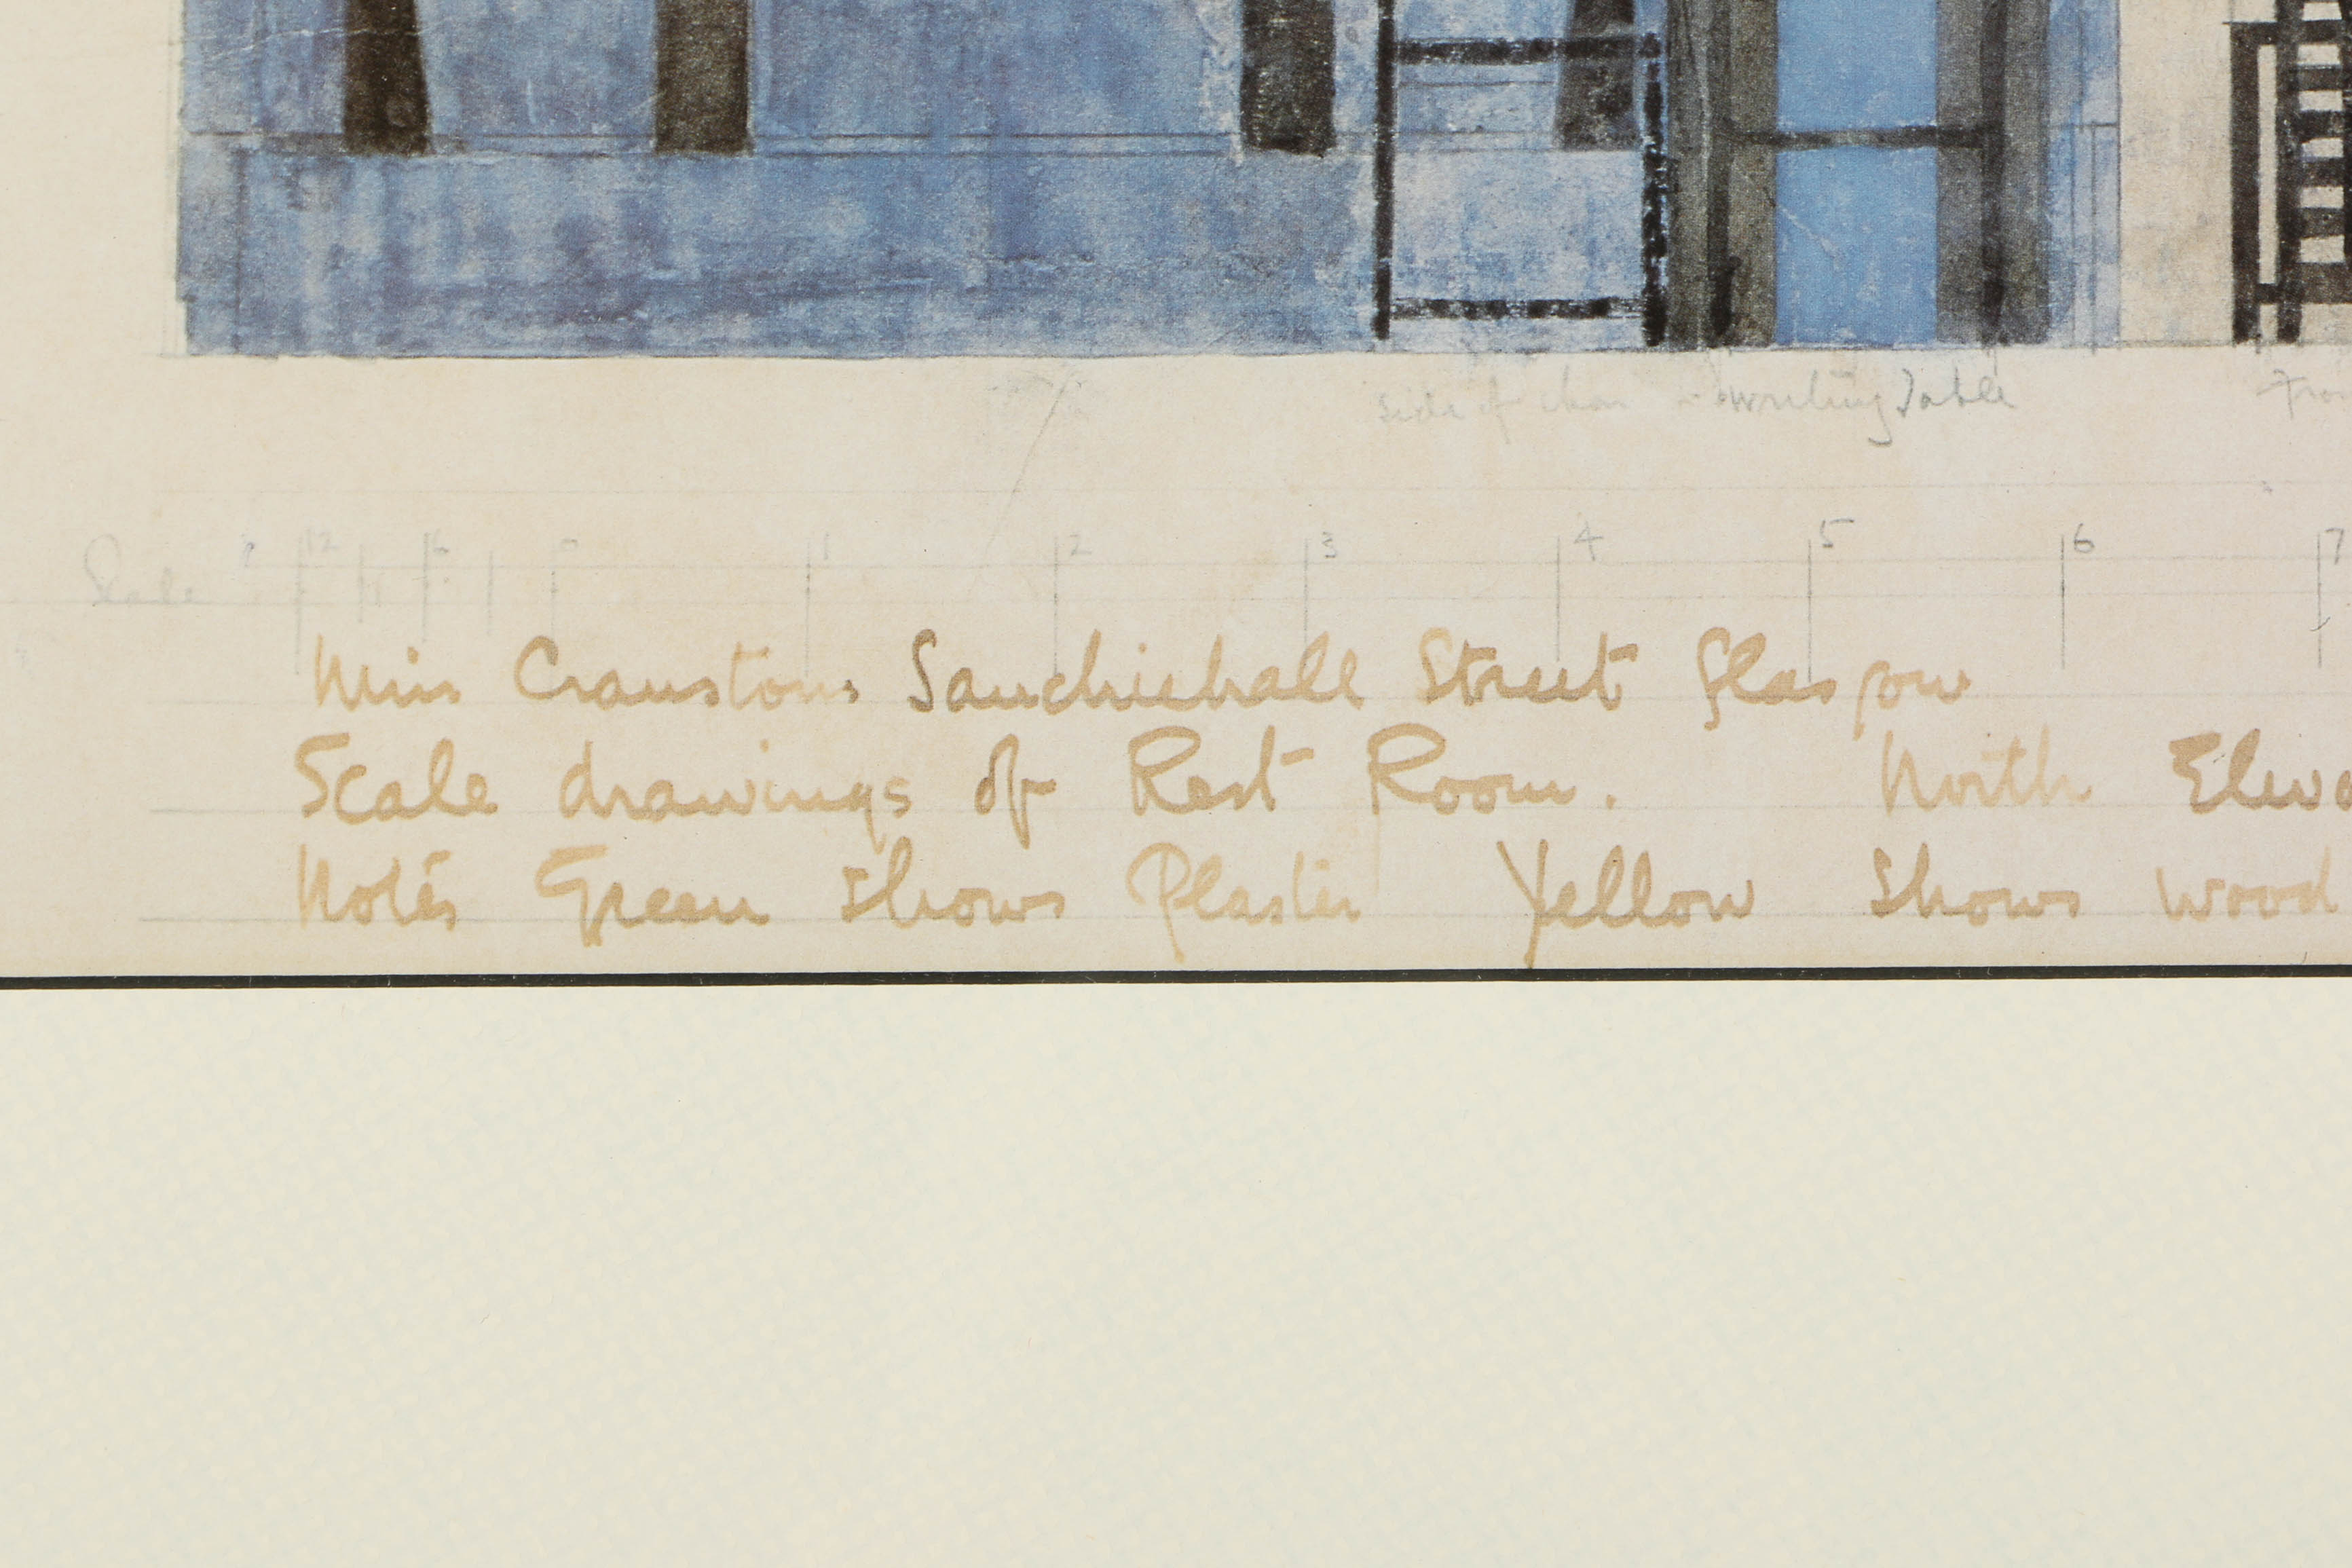 Side of chair writing Table
Scale 12 6 0 1 2 3 4 5 6 7
Miss Cranstons Sauchiehall Street Glasgow
Scale drawings of Rest Room. North Eleva
Notes Green shows Plaster Yellow Shows wood